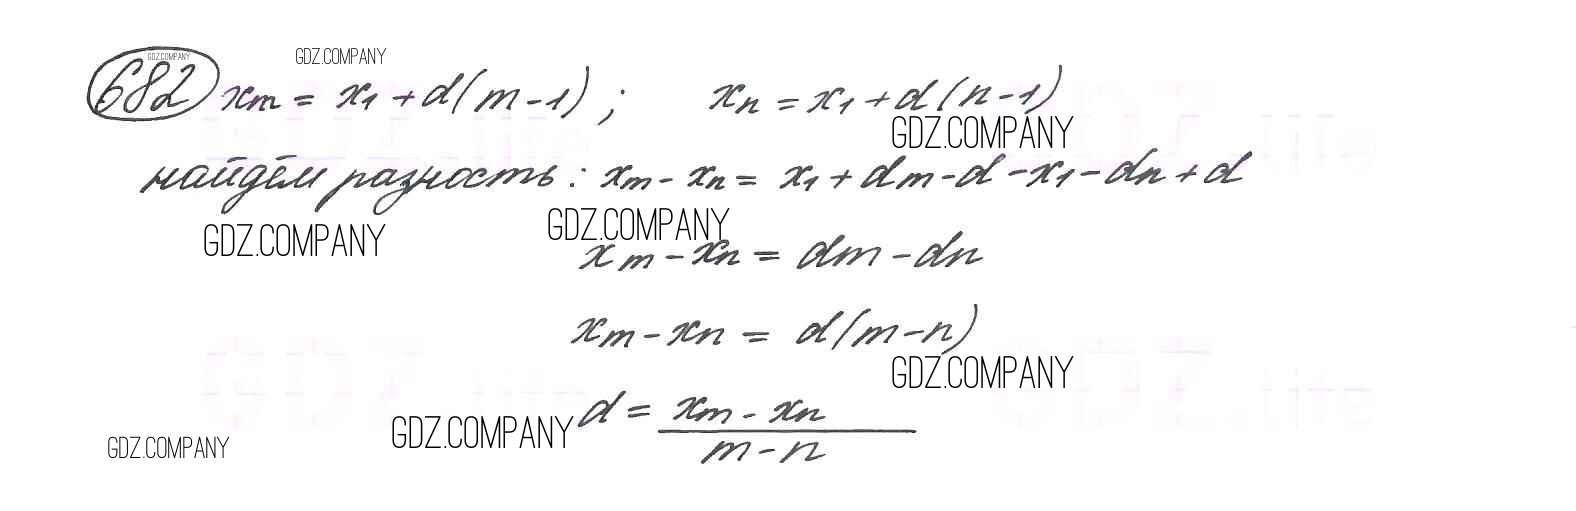 GDZ.COMPANY
GDZ.COMPANY
682 xm = x1 + d(m-1) ; xn = x1 + d(n-1)
GDZ.COMPANY
найдём разность: xm - xn = x1 + dm - d - x1 - dn + d
GDZ.COMPANY
GDZ.COMPANY
xm - xn = dm - dn
xm - xn = d(m-n)
GDZ.COMPANY
d = xm - xn
GDZ.COMPANY
m - n
GDZ.COMPANY